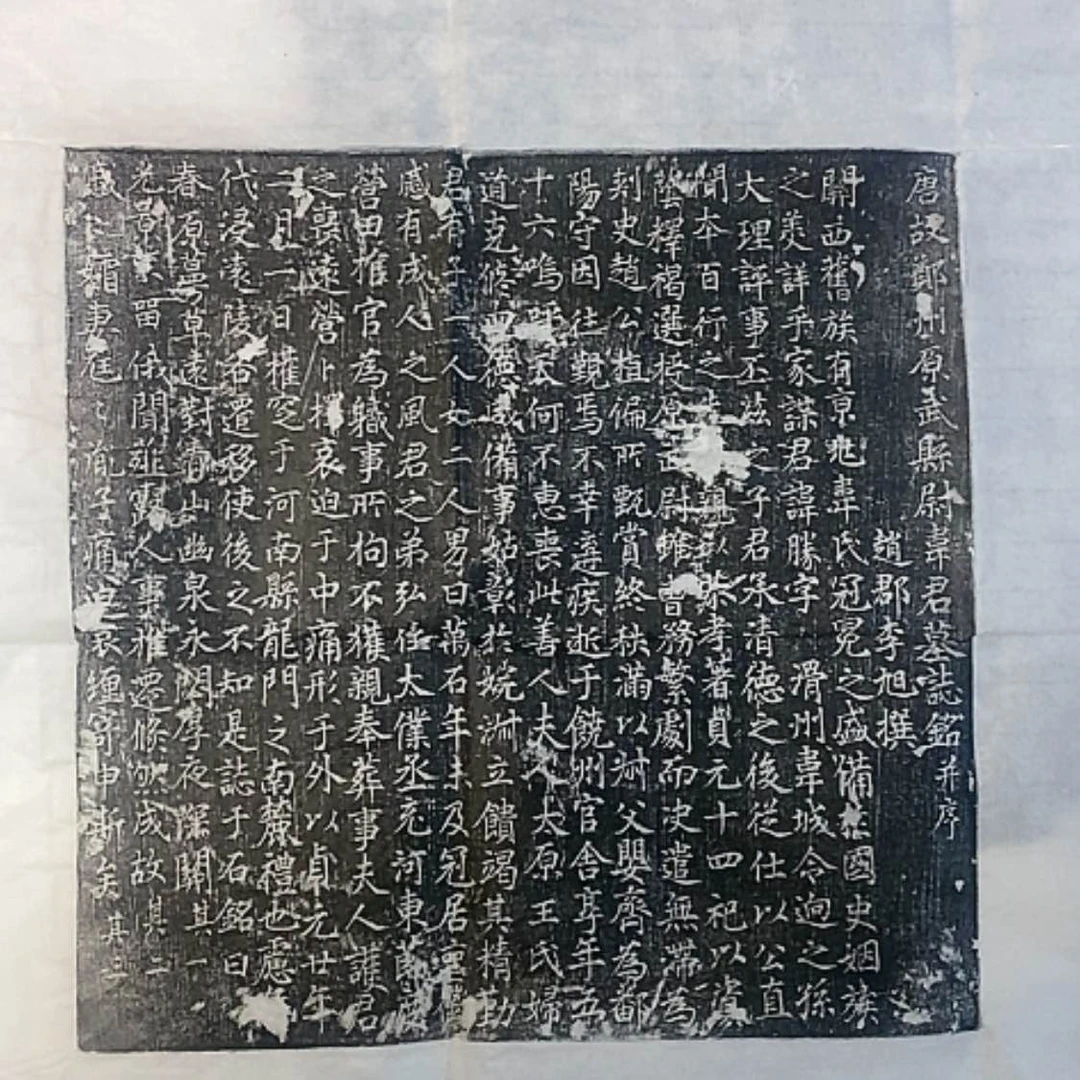 唐故鄭州原武縣尉韋君墓誌銘并序
趙郡李旭撰
關西舊族有京兆韋氏冠冕之盛備在國史姻族
之美詳乎家諜君諱勝字 滑州韋城令迥之孫
大理評事丕茲之子君承清德之後從仕以公直
聞夲百行之 親以 孝著貞元十四祀以資
蔭釋褐選授原武尉雖曹務繁劇而決遣無滯為
刺史趙公植偏所甄賞終秩滿以尉父嬰齊為鄱
陽守因往覲焉不幸遘疾逝于饒州官舍享年五
十六嗚呼天何不惠喪此善人夫人太原王氏婦
道克脩四德咸備事姑彰於婉淑立饋竭其精勤
君有子一人女二人男曰萬石年未及冠居
感有成人之風君之弟弘任太僕丞充河東節度
營田推官為軄事所拘不獲親奉葬事夫人護君
之喪遠營卜擇哀迫于中痛形于外以貞元廿年
二月一日權窆于河南縣龍門之南麓禮也慮
代浸遠陵谷遷移使後之不知是誌于石銘曰
春原蔓草遠對青山幽泉永閟厚夜深關其一
光景不留俄聞薤露人事推遷倏然成故其二
孀妻 胤子痛 哀纏 申斯矣其三